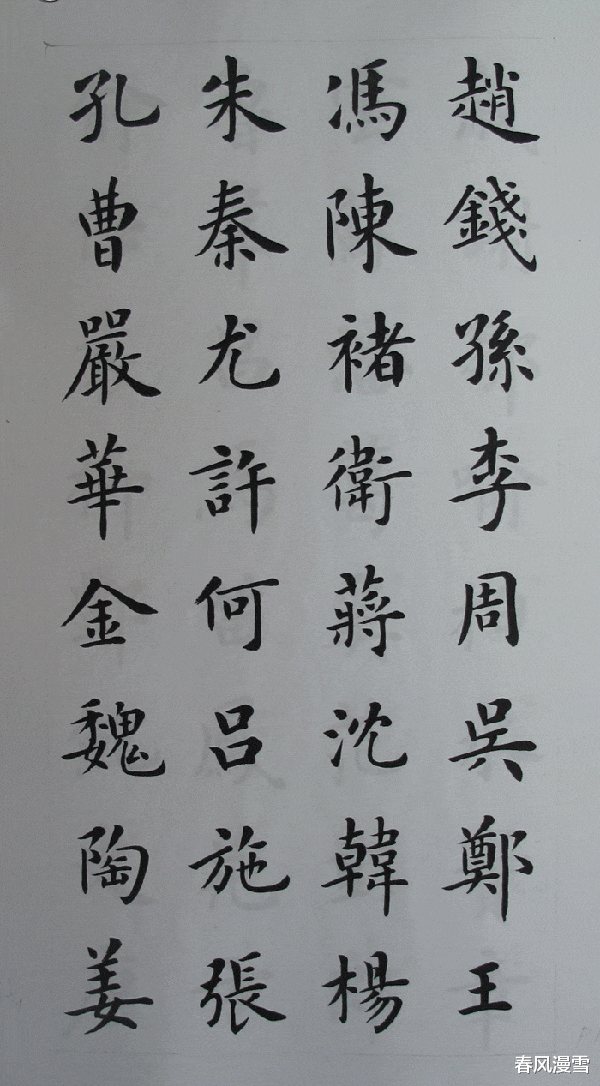 趙錢孫李周吳鄭王
馮陳褚衛蔣沈韓楊
朱秦尤許何呂施張
孔曹嚴華金魏陶姜
春风漫雪